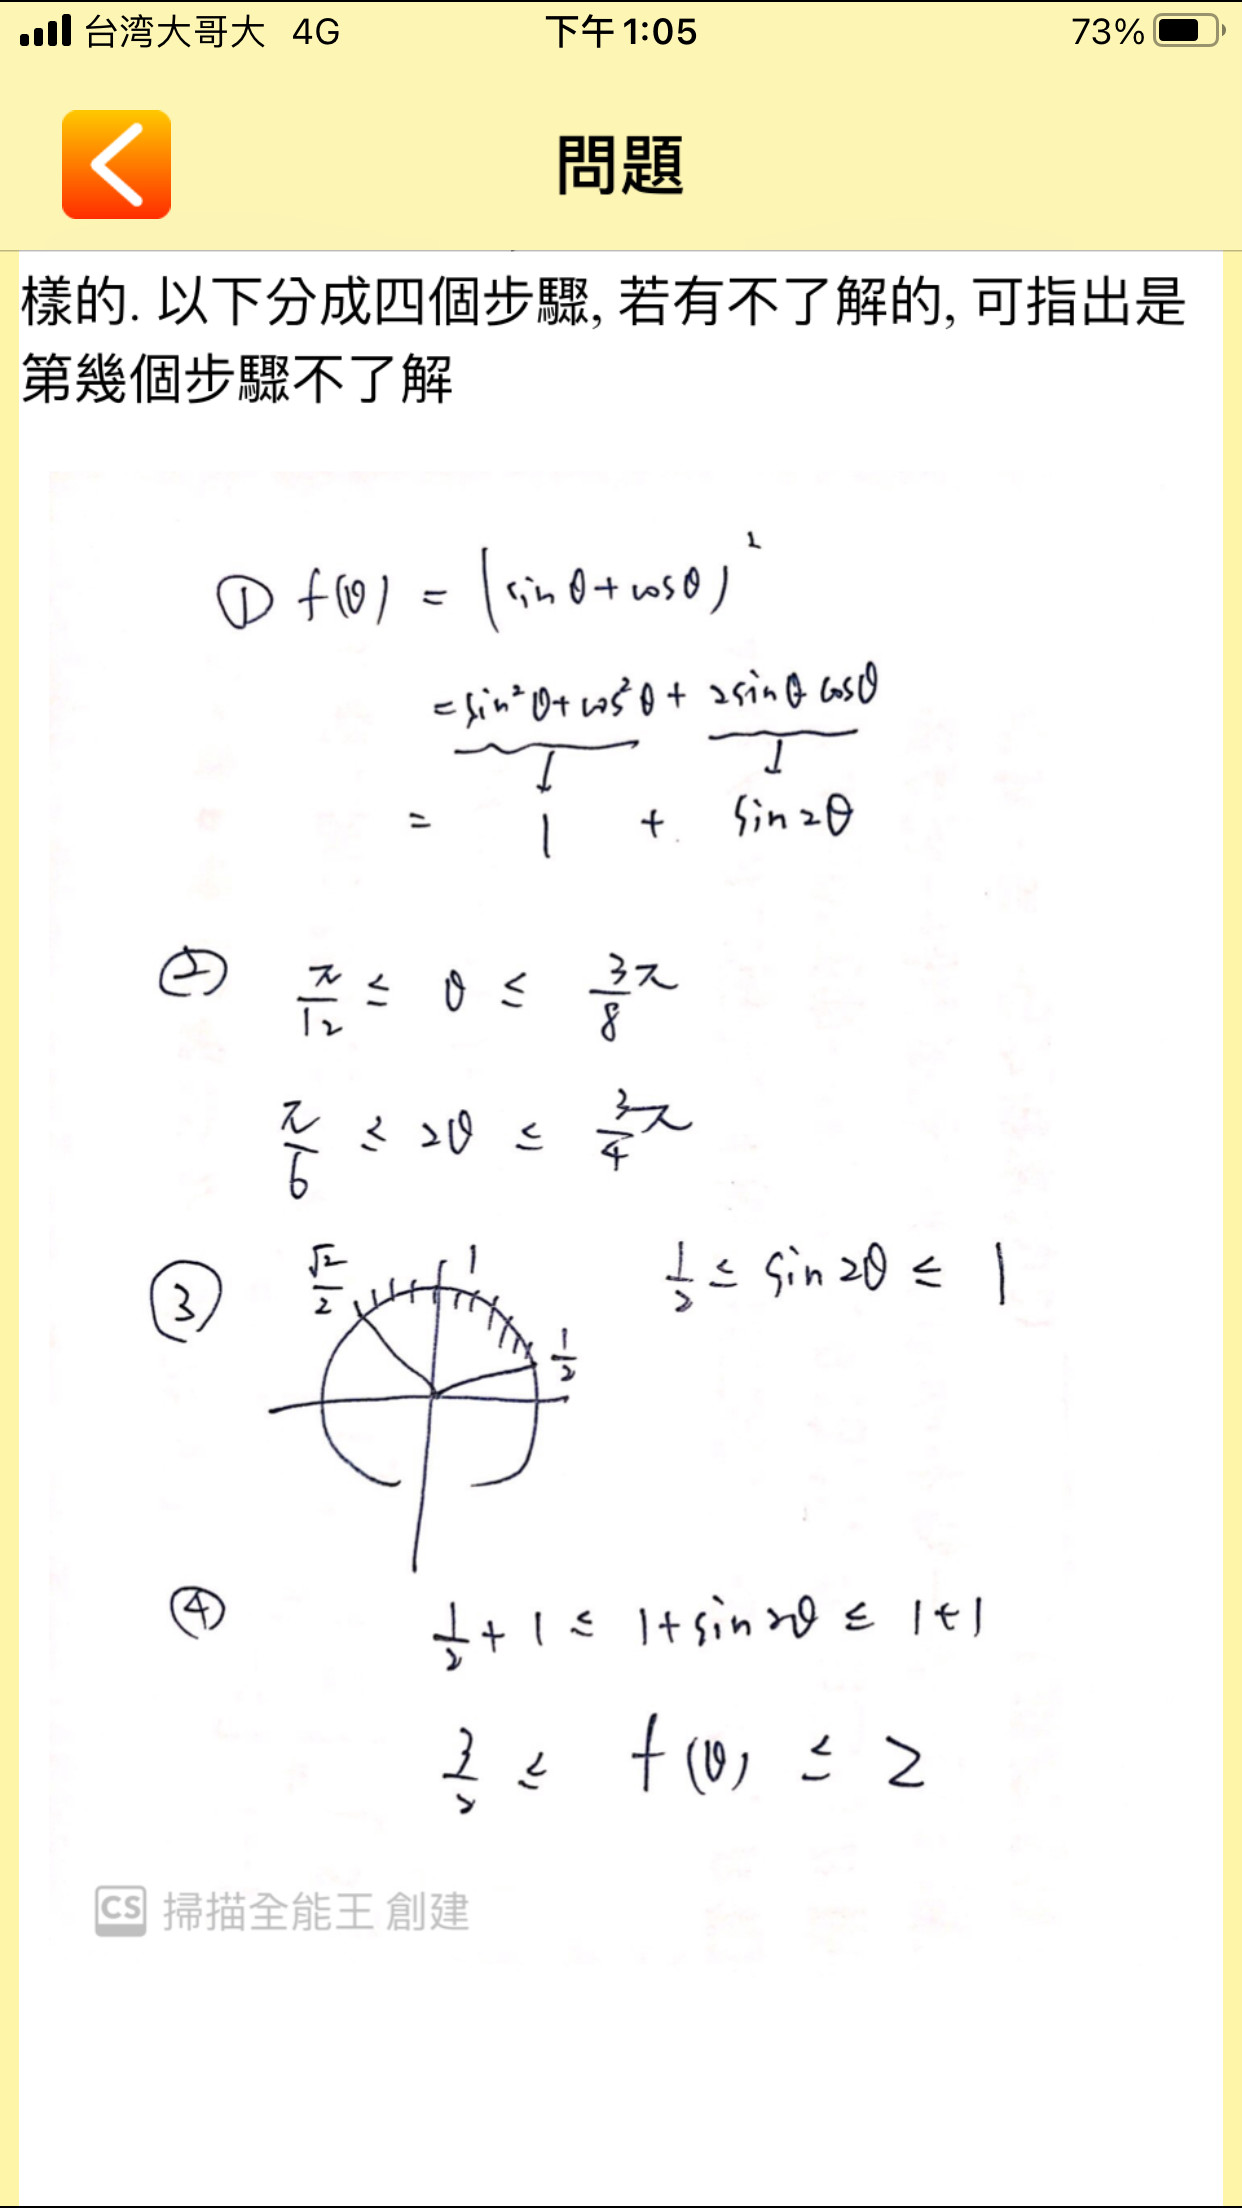 台湾大哥大 4G 下午1:05 73%
問題
樣的. 以下分成四個步驟, 若有不了解的, 可指出是
第幾個步驟不了解
① f(θ) = (sin θ + cos θ)²
= sin²θ + cos²θ + 2 sin θ cos θ
↓ ↓
= 1 + sin 2θ
② π/12 ≤ θ ≤ 3/8 π
π/6 ≤ 2θ ≤ 3/4 π
③ √2/2 1 1/2 1/2 ≤ sin 2θ ≤ 1
④ 1/2 + 1 ≤ 1 + sin 2θ ≤ 1 + 1
3/2 ≤ f(θ) ≤ 2
CS 掃描全能王 創建